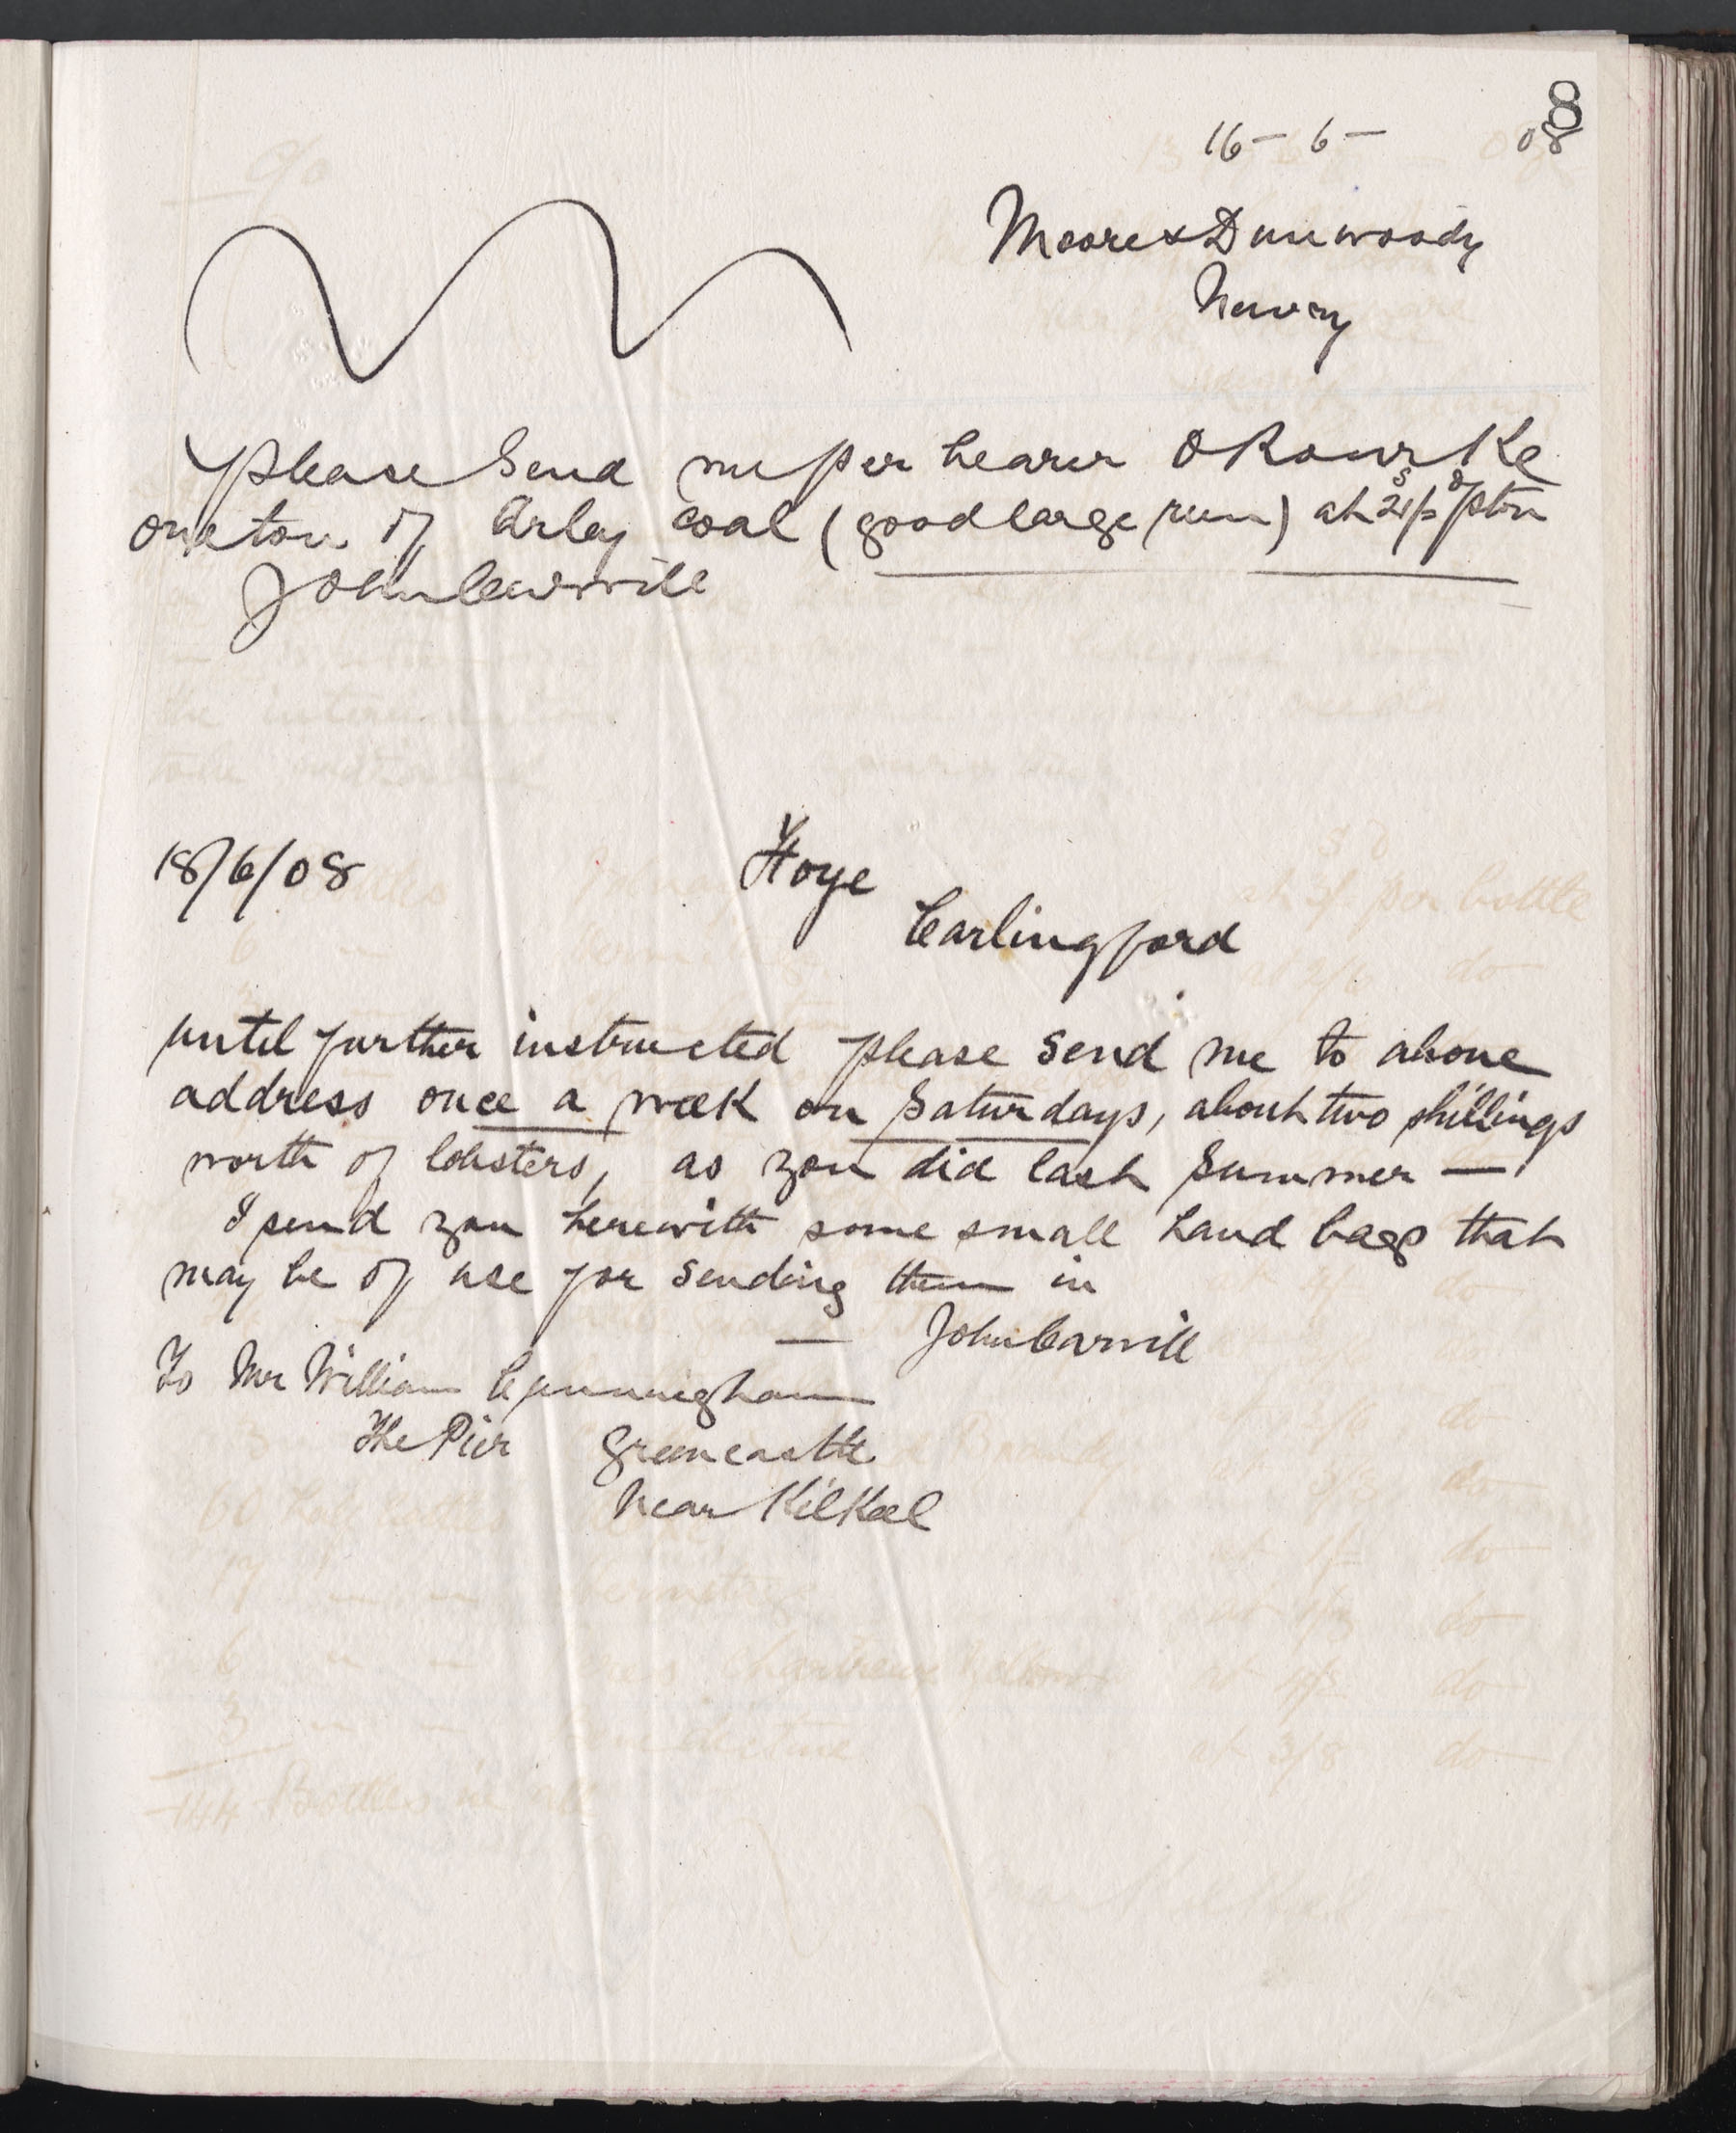 8
16 - 6 - 08
Moore & Dunwoody
Newry
please send me per bearer O Rourke
one ton of Arley coal (good large run) at 21/3 p ton
John Carvill
18/6/08
Carlingford
until further instructed please send me to above
address once a week on Saturdays, about two shillings
worth of lobsters, as you did last summer —
I send you herewith some small hand bags that
may be of use for sending them in
— John Carvill
To Mr William Cunningham
The Pier Greencastle
Near Kilkeel